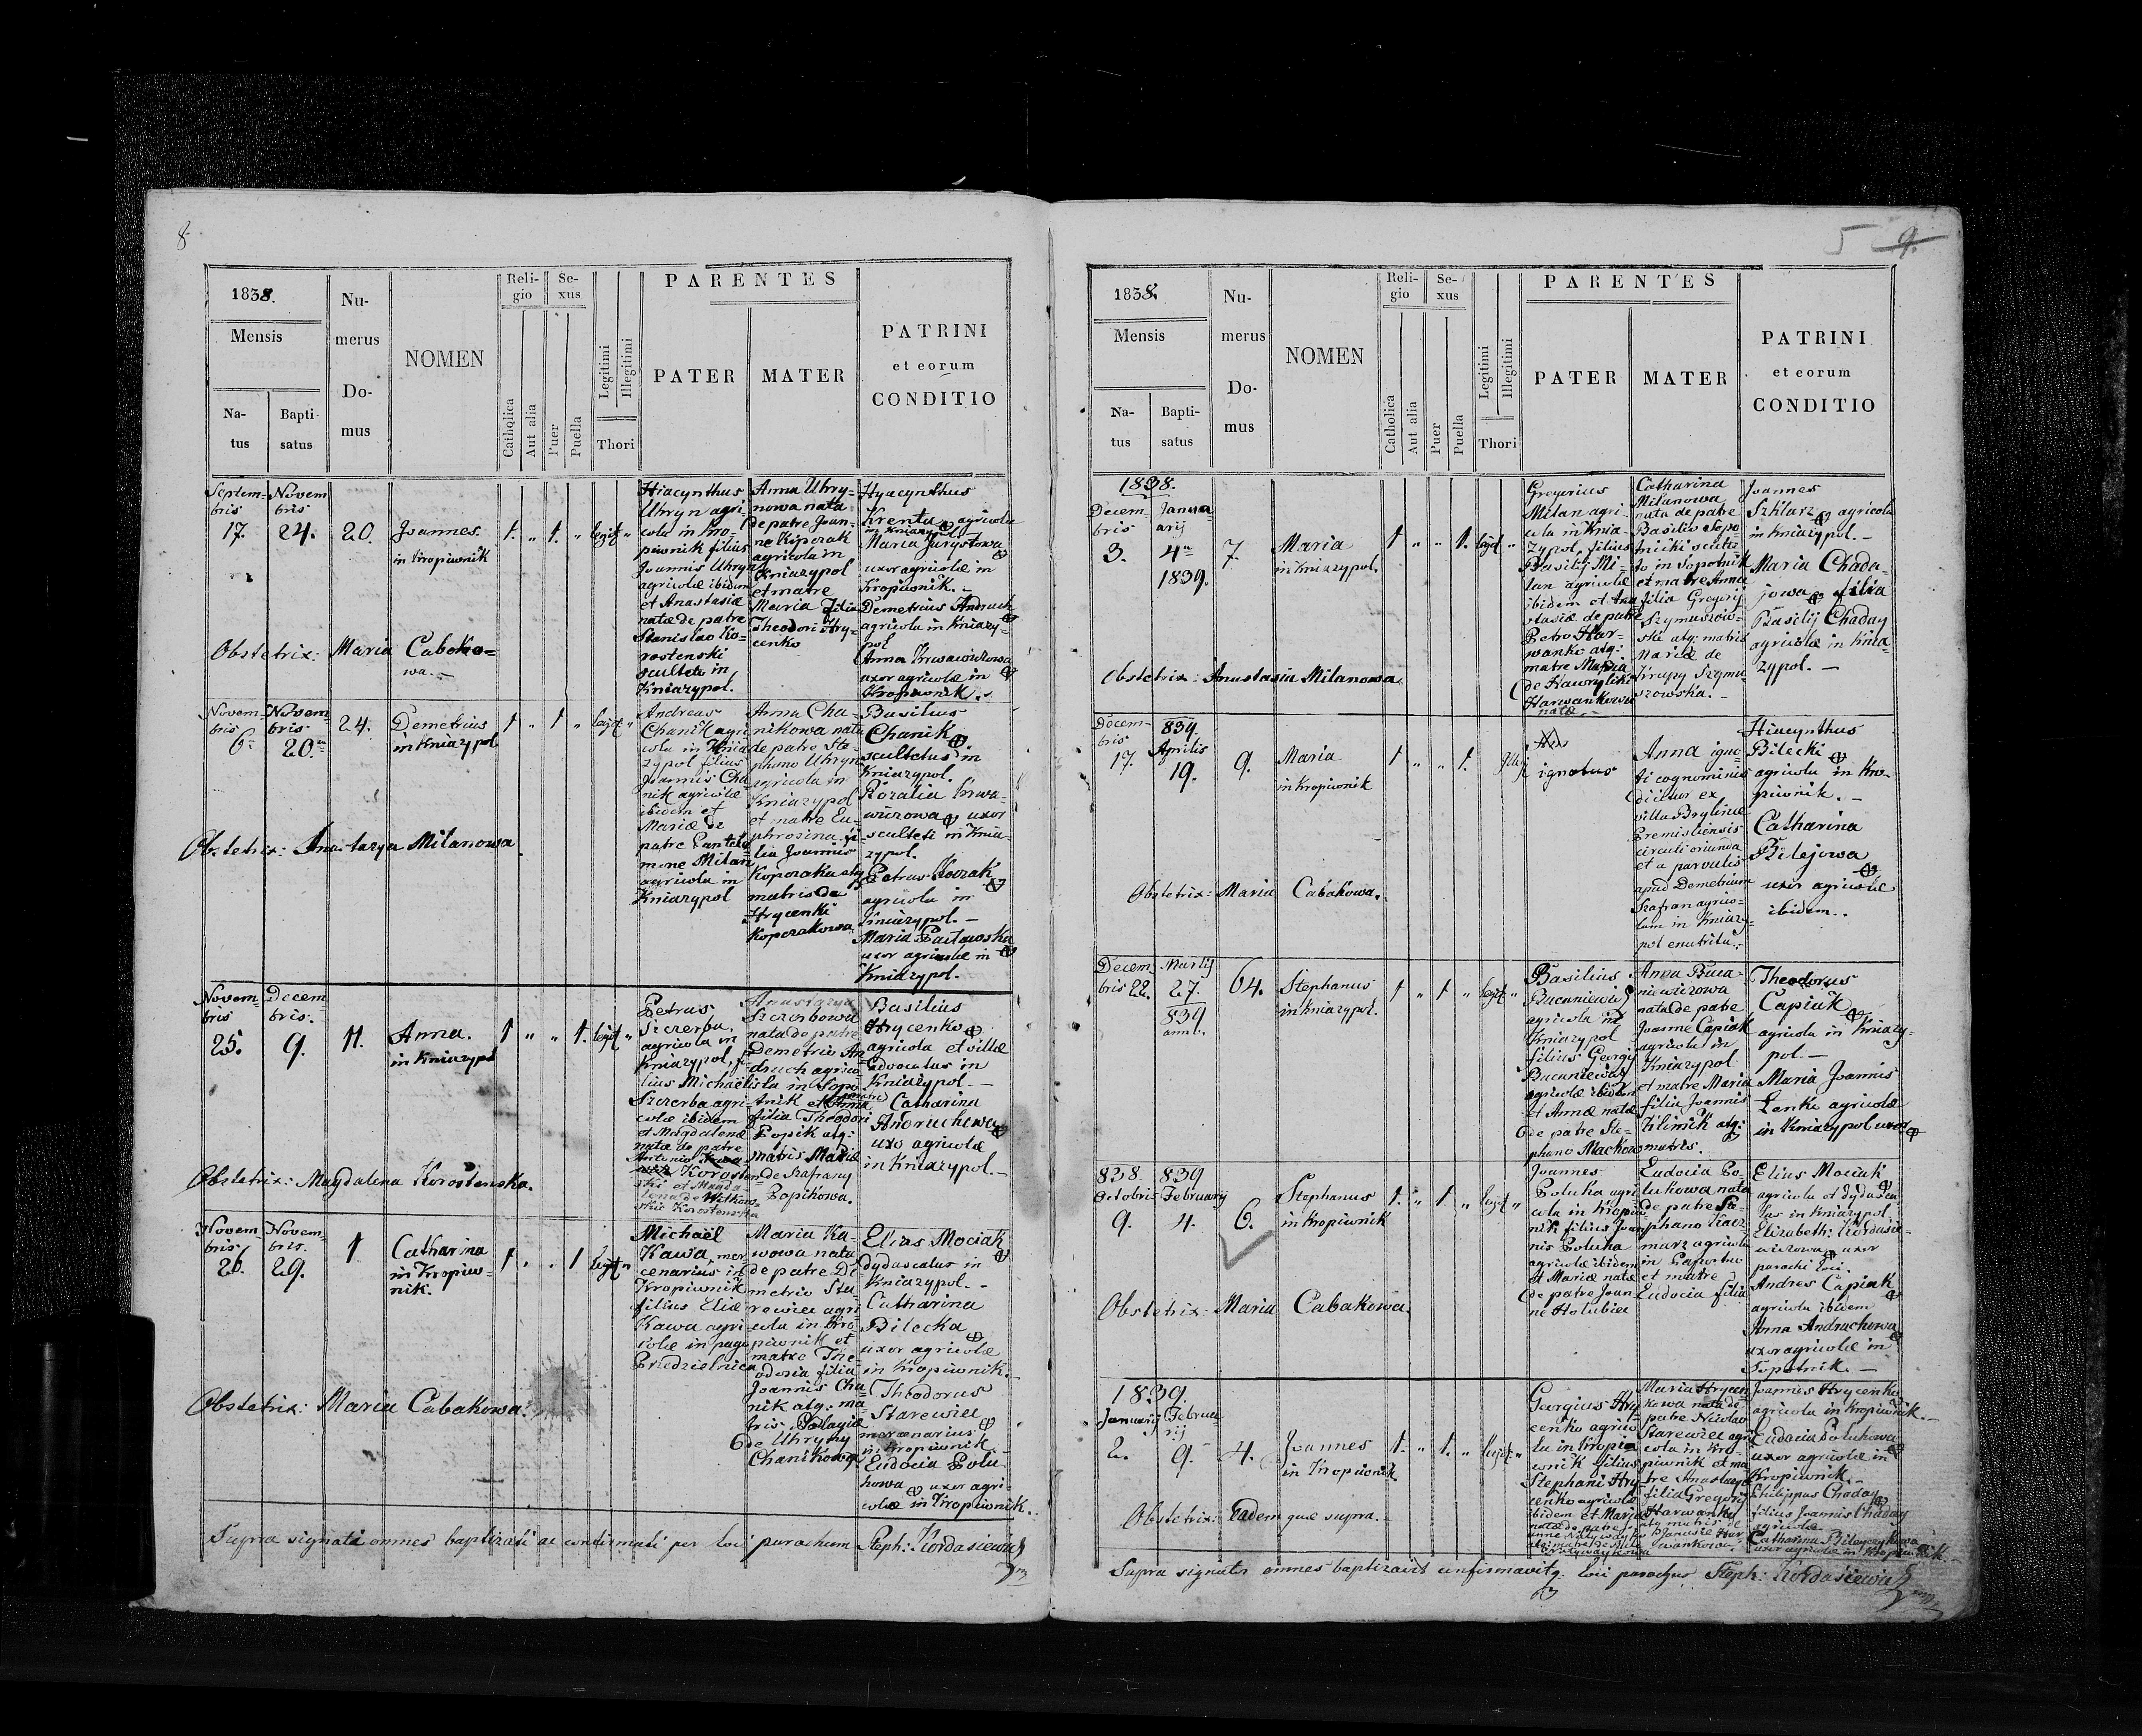 8.
1838.
Mensis
Na-
tus
Bapti-
satus
Nu-
merus
Do-
mus
NOMEN
Reli-
gio
Catholica
Aut alia
Se-
xus
Puer
Puella
Legitimi
Illegitimi
Thori
PARENTES
PATER
MATER
PATRINI
et eorum
CONDITIO
Septem-
bris
17.
Novem
bris
24.
20.
Joannes.
in Kropiwnik
1. " 1. " legit "
Hiacynthus
Uhryn agri-
cola in Kro-
piwnik filius
Joannis Uhryn
agricolæ ibidem
et Anastasiæ
natæ de patre
Stanislao Ko-
rostenski
sculteto in
Kniazypol.
Anna Uhry-
nowa nata
de patre Joan-
ne Koperak
agricola in
Kniazypol
et matre
Maria filia
Theodori Hry-
cenko
Hyacynthus
Krenta agricola
in Kniazypol
Maria Jurystowa
uxor agricolæ in
Kropiwnik. -
Demetrius Andruch
agricola in Kniazy-
pol
Anna Krwawiczowa
uxor agricolæ in
Kropiwnik. -
Obstetrix: Maria Cabako=
wa. -
Novem-
bris
6
Novem
bris
20
24.
Demetrius
in Kniazypol
1 " 1 " legit "
Andreas
Chanik agri
cola in Knia
zypol filius
Joannis Cha
nik agricolæ
ibidem et
Mariæ de
patre Pantele
mone Milan
agricola in
Kniazypol
Anna Cha-
nikowa nata
de patre Ste-
phano Uhryn
agricola in
Kniazypol
et matre Eu-
phrosina fi-
lia Joannis
Koperaka atq
matris de
Hrycenki
Koperakowa.
Basilius
Chanik
scultetus in
Kniazypol.
Rozalia Krwa-
wiczowa uxor
sculteti in Knia-
zypol.
Petrus Kozak
agricola in
Kniazypol. -
Maria Pastawska
uxor agricolæ in
Kniazypol.
Obstetrix: Anastazya Milanowa
Novem-
bris
25.
Decem
bris.
9.
11.
Anna.
in Kniazypol
1 " " 1. legit "
Petrus
Szczerba.
agricola in
Kniazypol, fi-
lius Michaëlis
Szczerba agri-
colæ ibidem
et Magdalenæ
natæ de patre
Antonio
Korosten
ski et Magda
lena de Witkow
skie Korostenska
Anastazya
Szczerbowa
nata de patre
Demetrio An
druch agrico
la in Sopo
tnik et Anna
filia Theodori
Popik atq:
matris Mariæ
de Szafrany
Popikowa.
Basilius
Hrycenko
agricola et villæ
advocatus in
Kniazypol. -
Catharina
Andruchowa
uxo agricolæ
in Kniazypol. -
Obstetrix: Magdalena Korostenska.
Novem
bris.
26.
Novem-
bris.
29.
1
Catharina
in Kropiw-
nik.
1 " " 1 legit "
Michaël
Kawa, mer
cenarius in
Kropiwnik
filius Eliæ
Kawa agri-
colæ in pago
Brzedzielnica
Maria Ka-
wowa nata
de patre De
metrio Sta-
rewiec agri
cola in Kro
piwnik et
matre The-
odosia filia
Joannis Cha
nik atq: ma
tris Pelagiæ
de Uhryny
Chanikowa.
Elias Mociak
dydascalus in
Kniazypol. -
Catharina
Bilecka
uxor agricolæ
in Kropiwnik. -
Theodorus
Starewiec
mercenarius
in Kropiwnik. -
Eudocia Polu
howa uxor agri-
colæ in Kropiwnik.
Obstetrix: Maria Cabakowa.
Supra signati omnes baptizati ac confirmati per loci parochum Steph: Kordasiewicz
5 9.
1838.
Mensis
Na-
tus
Bapti-
satus
Nu-
merus
Do-
mus
NOMEN
Reli-
gio
Catholica
Aut alia
Se-
xus
Puer
Puella
Legitimi
Illegitimi
Thori
PARENTES
PATER
MATER
PATRINI
et eorum
CONDITIO
1838.
Decem
bris
3.
Janua
arij
4
1839.
7.
Maria
in Kniazypol.
1 " " 1. legit "
Gregorius
Milan agri-
cola in Knia-
zypol, filius
Basilij Mi-
lan agricolæ
ibidem et Ana
stasiæ de patre
Petro Har-
wanko atq:
matre Maria
de Hawryliki
Harwankowa
natæ. -
Catharina
Milanowa
nata de patre
Basilio Sopo
tnicki sculte
to in Sopotnik
et matre Anna
filia Gregorij
Szymuszow-
ski atq: matris
Mariæ de
Krupy Szymu
szowska. -
Joannes
Szklarz agricola
in Kniazypol. -
Maria Chada-
jowa filia
Basilij Chaday
agricolæ in Knia-
zypol. -
Obstetrix: Anastasia Milanowa.
Decem-
bris
17.
839.
Aprilis
19.
9.
Maria
in Kropiwnik
1 " " 1.
ignotus
Anna igno
ti cognominis
dicitur ex
villa Brylince
Premisliensis
circuli oriunda
et a parvulis
apud Demetrium
Szafran agrico-
lam in Kniazy-
pol enutrita.
Hiacynthus
Bilecki
agricola in Kro-
piwnik. -
Catharina
Bilejowa
uxor agricolæ
ibidem..
Obstetrix: Maria Cabakowa.
Decem
bris 22.
Martij
27.
839
anni.
64.
Stephanus
in Kniazypol.
1 " 1 " legit "
Basilius
Bucaniewicz
agricola in
Kniazypol
filius Georgij
Bucaniewicz
agricolæ ibidem
et Annæ natæ
de patre Ste-
phano Machon
Anna Buca-
niewiczowa
nata de patre
Joanne Capiak
agricola in
Kniazypol
et matre Maria
filia Joannis
Klimik atq:
matris.
Theodorus
Capiak
agricola in Kniazy-
pol. -
Maria Joannis
Lenke agricolæ
in Kniazypol uxor
838
Octobris
9.
839
February
4.
6.
Stephanus
in Kropiwnik
1. " 1 " legit "
Joannes
Poluha agri
cola in Kropiw
nik filius Joan
nis Poluha
agricolæ ibidem
et Mariæ natæ
de patre Joan
ne Holubiec
Eudocia Po-
lukowa nata
de patre Ste-
phano Kacz
marz agricola
in
et matre
Eudocia filia
Elias Mociak
agricola et dydasca
lus in Kniazypol.
Elizabeth: Kordasie-
wiczowa uxor
parochi loci.
Andres Capiak
agricola ibidem
Anna Andruchowa
uxor agricolæ in
Sopotnik. -
Obstetrix: Maria Cabakowa.
1839.
Januarij
2.
Februa
rij
9.
4.
Joannes
in Kropiwnik.
1. " 1. " legit "
Georgius Hry-
cenko agrico
la in Kropi
wnik filius
Stephani Hry-
cenko agricolæ
ibidem et Mariæ
natæ de patre
Maria Hrycen
kowa nata de
patre Nicolao
Starewiec agri
cola in Kro
piwnik et ma
tre Anastazya
filia Gregorij
Harwanko
atq matris
Joannes Hrycenko
agricola in Kropiwnik. -
Eudocia Poluhowa
uxor agricolæ in
Kropiwnik. -
Philippus Chaday
filius Joannis Chaday
agricolæ
Catharina
uxor agricolæ in Kropiwnik.
Obstetrix: Eadem quæ supra. -
Supra signatos omnes baptizavit confirmavitq: loci parochus Steph: Kordasiewicz